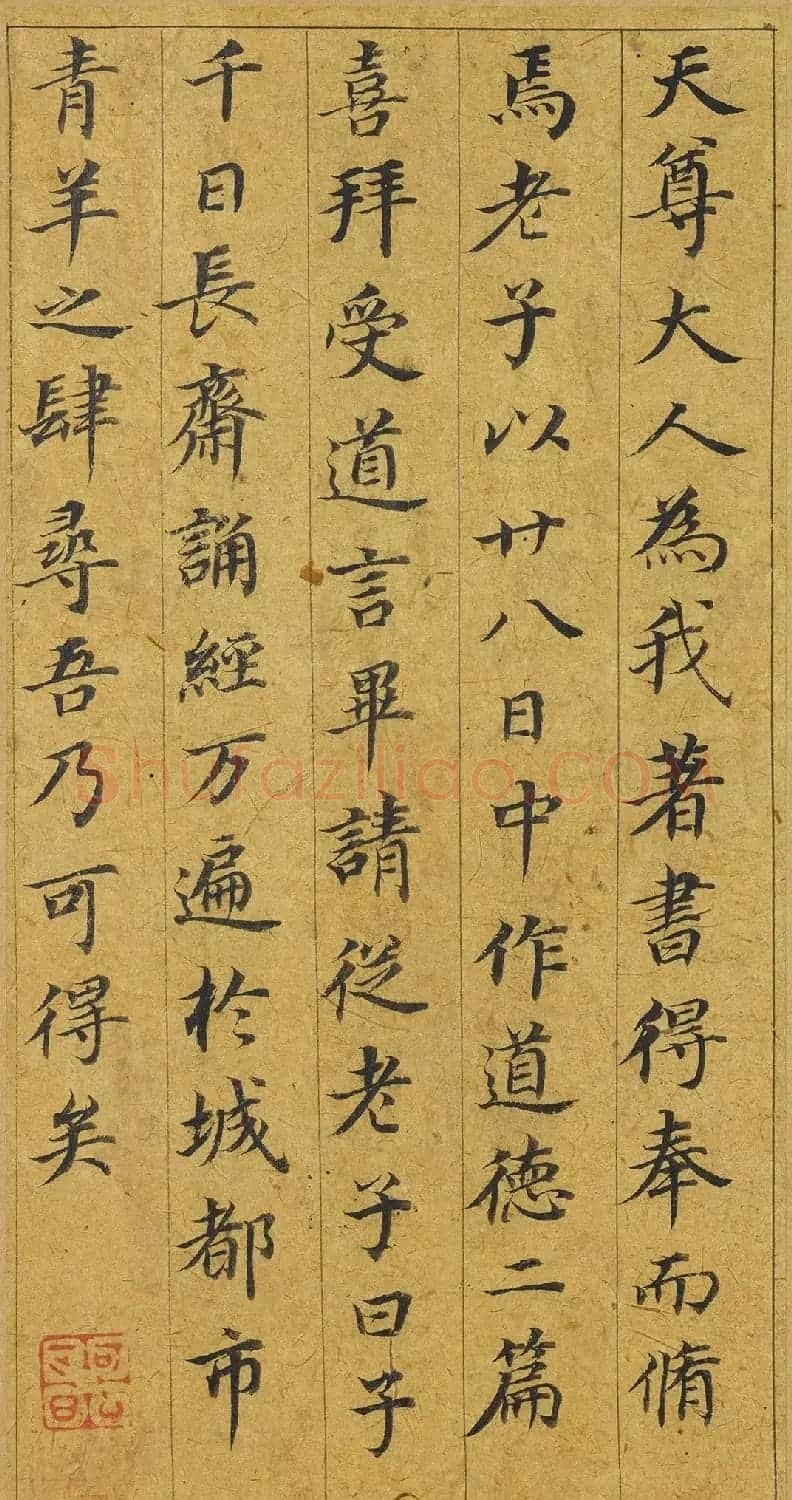 天尊大人為我著書得奉而脩
焉老子以廿八日中作道德二篇
喜拜受道言畢請從老子曰子
千日長齋誦經万遍於城都市
青羊之肆尋吾乃可得矣
Shufaziliao.COM